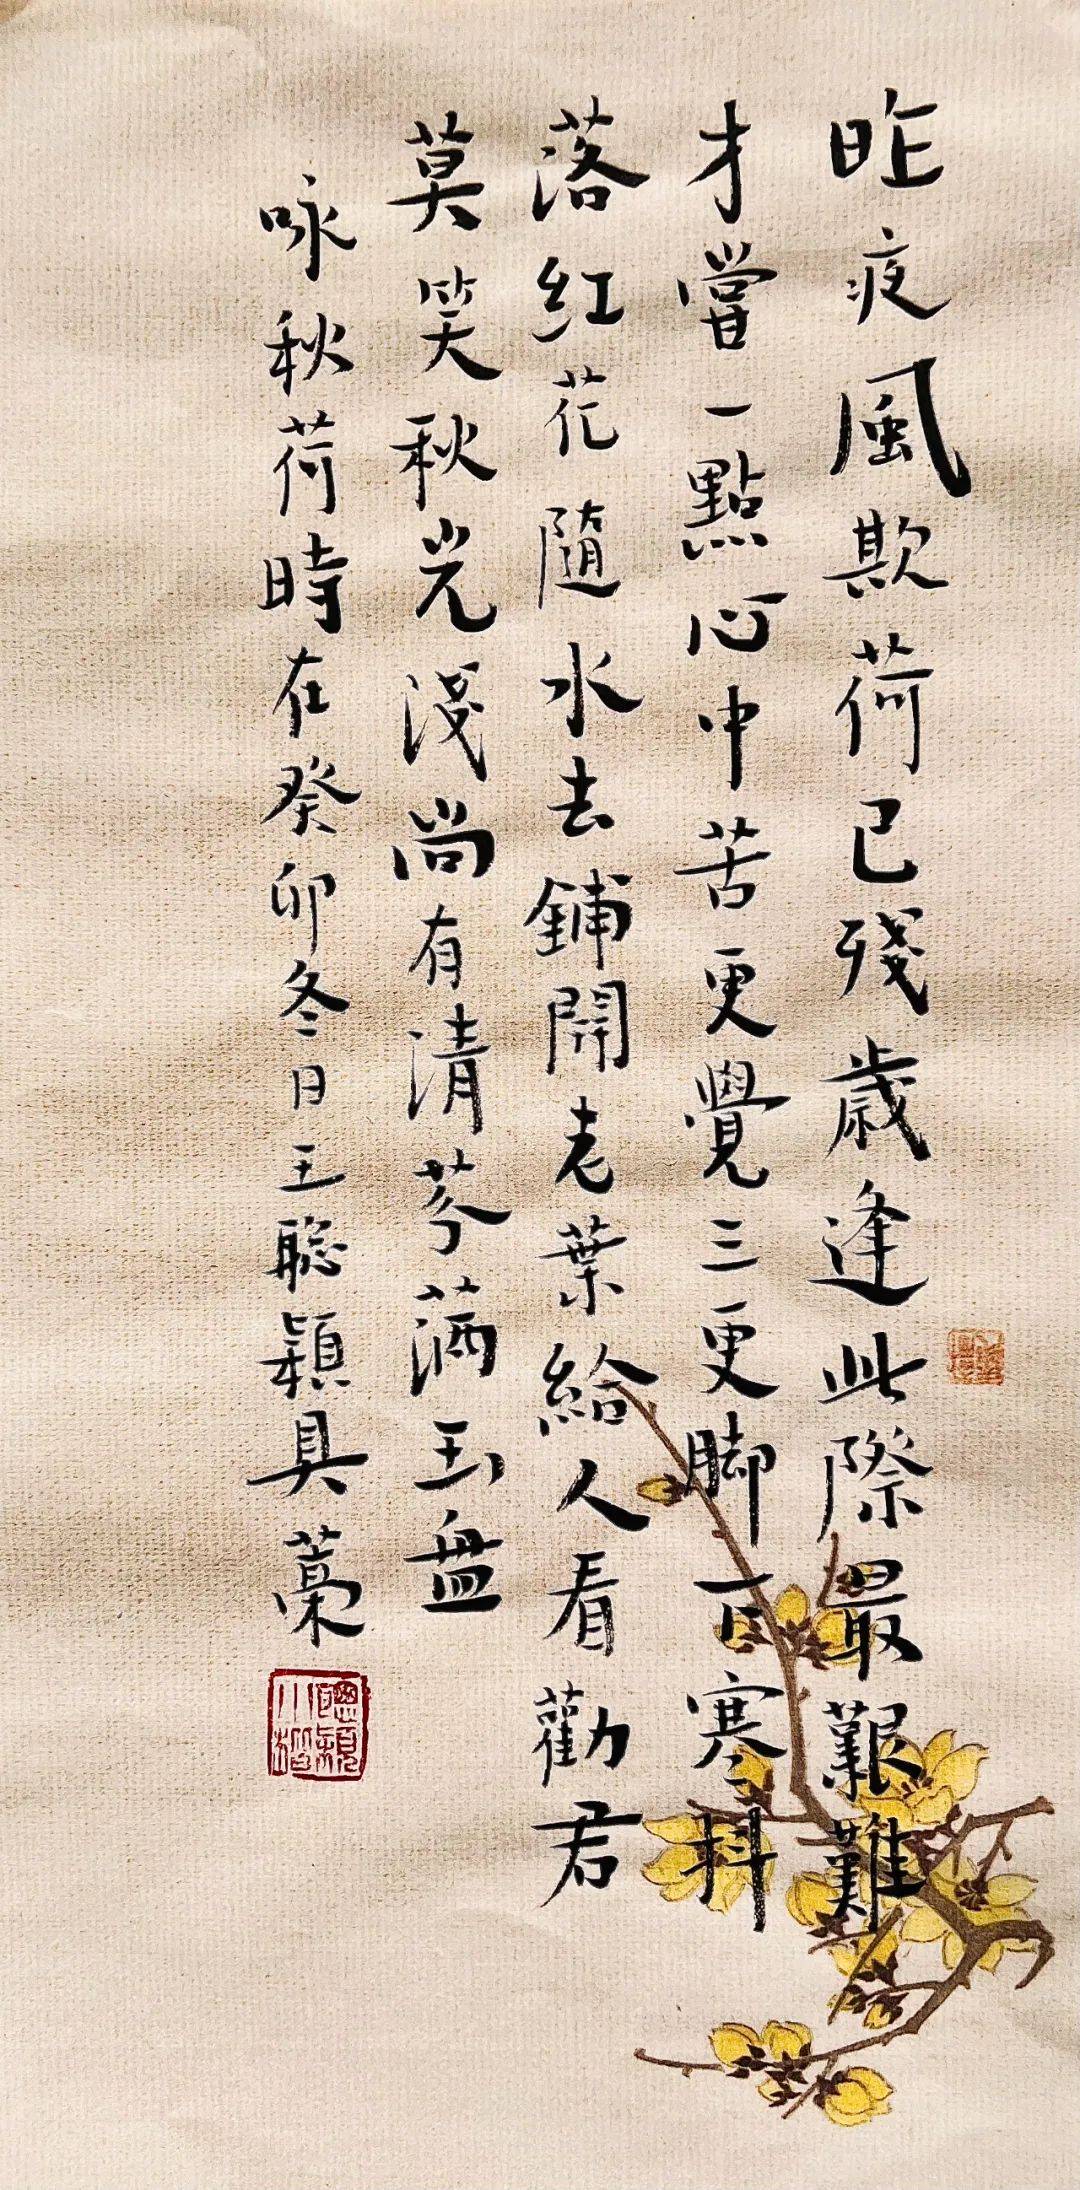 昨夜風欺荷已殘歲逢此際最艱難
才嘗一點心中苦更覺三更脚下寒抖
落紅花隨水去鋪開老葉給人看勸君
莫笑秋光淺尚有清芬洒玉盤
咏秋荷時在癸卯冬日王聰穎具藁